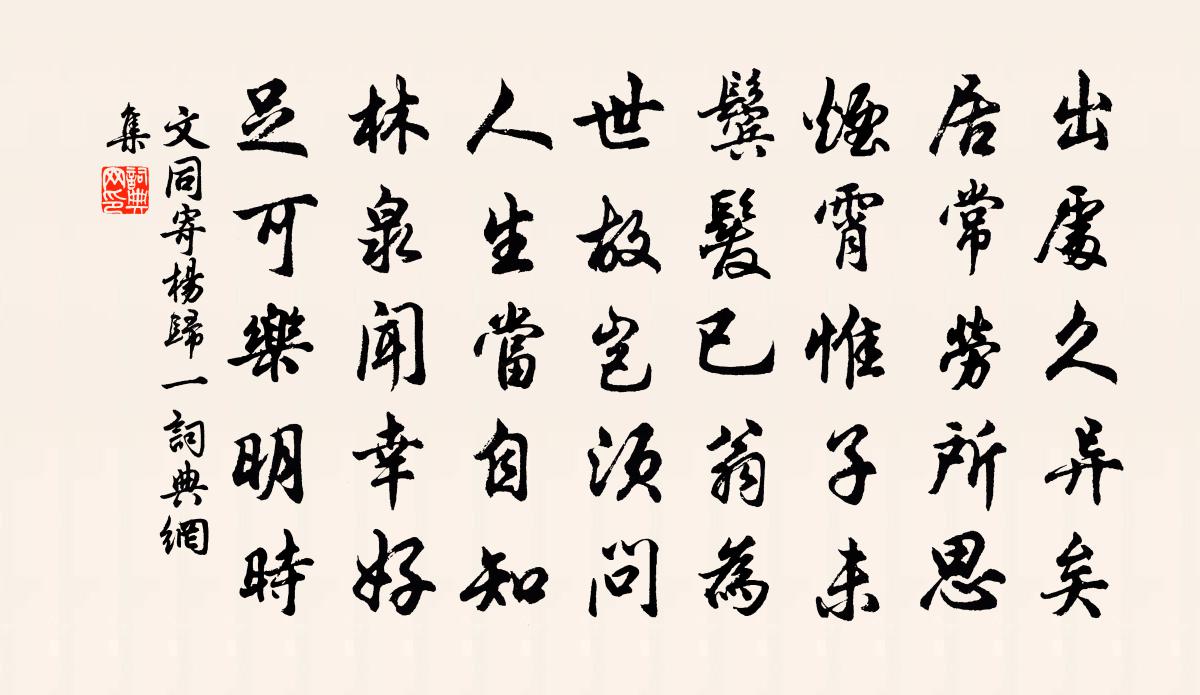 出處久异矣
居常勞所思
煙霄惟子未
鬢髮已翁為
世故豈須問
人生當自知
林泉聞幸好
足可樂明時
文同寄楊歸一詞典網
集
詞典
网印